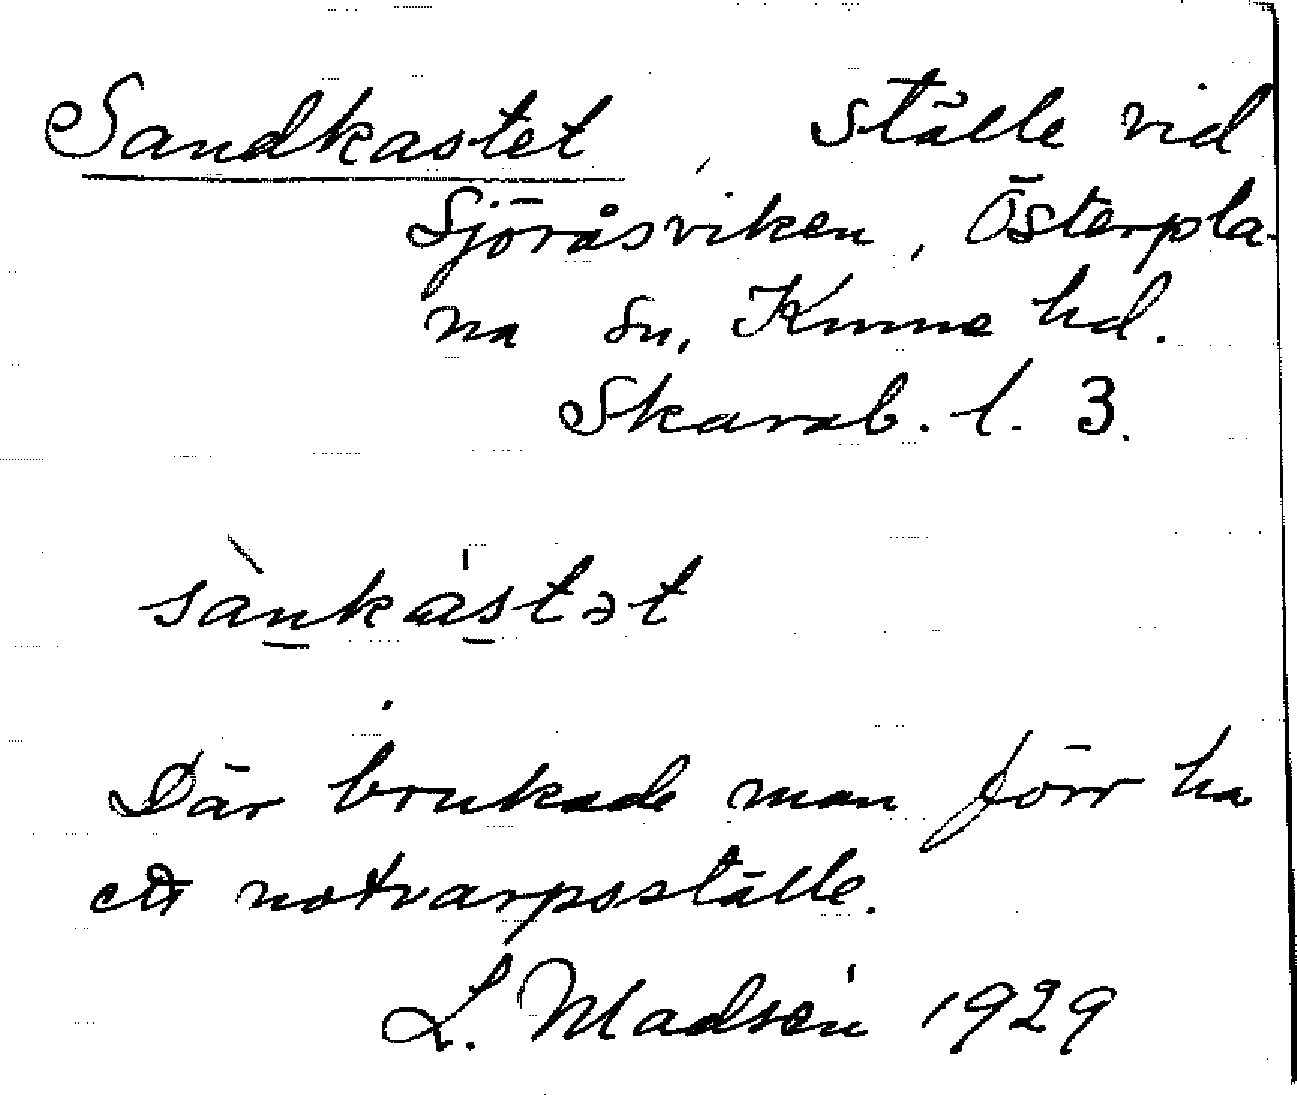 Sandkastet, ställe vid
Sjöråsviken, Österpla-
na sn, Kinne hd.
Skarab. l. 3.
sànkástət
Där brukade man förr ha
ett notvarpsställe.
L. Madsén 1929